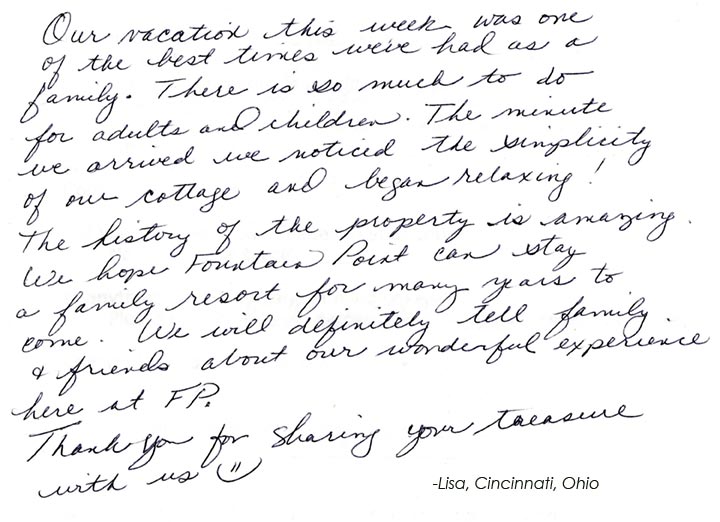 Our vacation this week was one
of the best times we've had as a
family. There is so much to do
for adults and children. The minute
we arrived we noticed the simplicity
of our cottage and began relaxing!
The history of the property is amazing.
We hope Fountain Point can stay
a family resort for many years to
come. We will definitely tell family
& friends about our wonderful experience
here at FP.
Thank you for sharing your treasure
with us =)
-Lisa, Cincinnati, Ohio